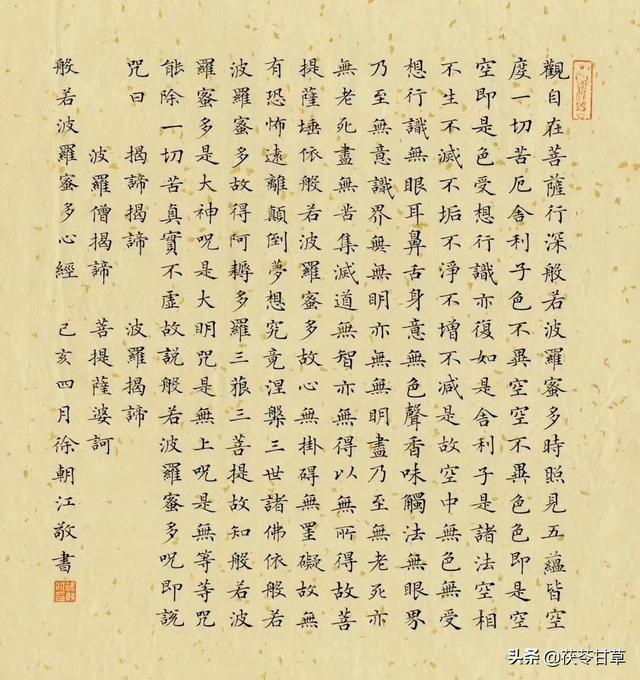 觀自在菩薩行深般若波羅蜜多時照見五蘊皆空
度一切苦厄舍利子色不異空空不異色色即是空
空即是色受想行識亦復如是舍利子是諸法空相
不生不滅不垢不淨不增不減是故空中無色無受
想行識無眼耳鼻舌身意無色聲香味觸法無眼界
乃至無意識界無無明亦無無明盡乃至無老死亦
無老死盡無苦集滅道無智亦無得以無所得故菩
提薩埵依般若波羅蜜多故心無掛碍無罣礙故無
有恐怖遠離顛倒夢想究竟涅槃三世諸佛依般若
波羅蜜多故得阿耨多羅三藐三菩提故知般若波
羅蜜多是大神呪是大明咒是無上呪是無等等咒
能除一切苦真實不虛故說般若波羅蜜多呪即說
咒曰 揭諦揭諦 波羅揭諦
波羅僧揭諦 菩提薩婆訶
般若波羅蜜多心經 己亥四月徐朝江敬書
头条 @茯苓甘草